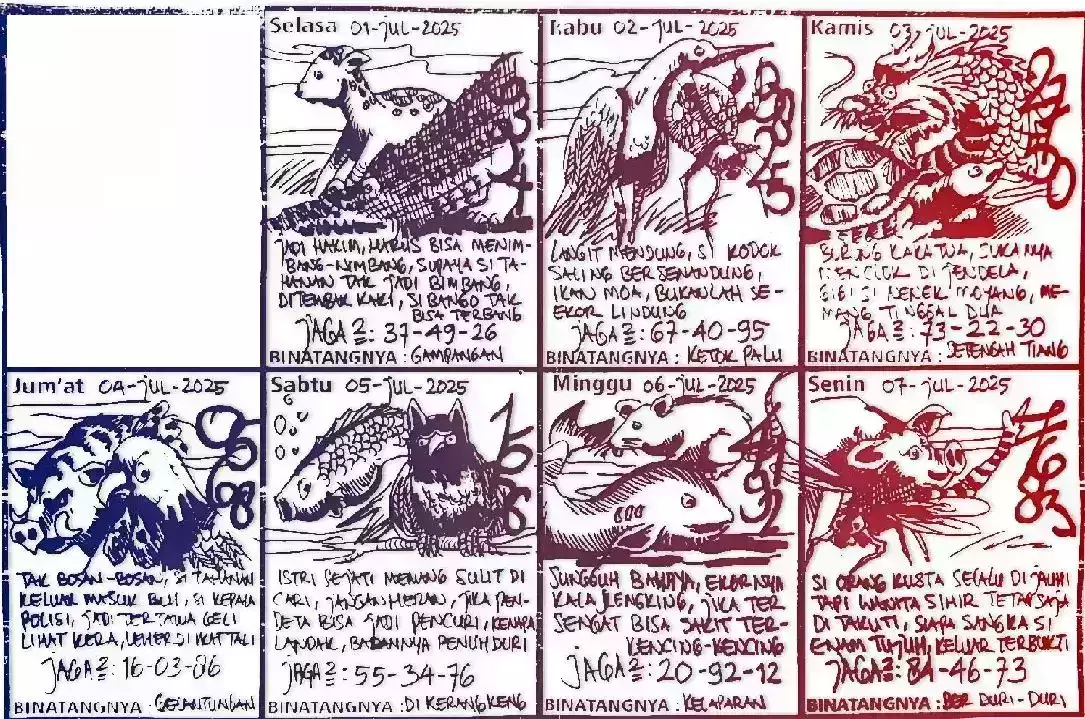 Selasa 01-JUL-2025
JADI HAKIM, HARUS BISA MENIM-
BANG-NIMBANG, SUPAYA SI TA-
HANAN TAK JADI BIMBANG,
DITEMBAK KAKI, SI BANGO TAK
BISA TERBANG
JAGA2: 37-49-26
BINATANGNYA: GAMPANGAN
Rabu 02-JUL-2025
LANGIT MENDUNG, SI KODOK
SALING BERSENANDUNG,
IKAN MOA, BUKANLAH SE-
EKOR LINDUNG
JAGA2: 67-40-95
BINATANGNYA: KETOK PALU
Kamis 03-JUL-2025
BURUNG KAKATUA, SUKANYA
MENCLOK DI JENDELA,
GIGI SI NENEK MOYANG, ME-
MANG TINGGAL DUA
JAGA2: 73-22-30
BINATANGNYA: SETENGAH TIANG
Jum'at 04-JUL-2025
TAK BOSAN-BOSAN, SI TAHANAN
KELUAR MASUK BUI, SI KEPALA
POLISI, JADI TERTAWA GELI
LIHAT KERA, LEHER DI IKAT TALI
JAGA2: 16-03-86
BINATANGNYA: GELANTUNGAN
Sabtu 05-JUL-2025
ISTRI SEJATI MEMANG SULIT DI
CARI, JANGAN HERAN, JIKA PEN-
DETA BISA JADI PENCURI, KENAPA
LANDAK, BADANNYA PENUH DURI
JAGA2: 55-34-76
BINATANGNYA: DI KERANGKENG
Minggu 06-JUL-2025
SUNGGUH BAHAYA, EKORNYA
KALAJENGKING, JIKA TER
SENGAT BISA SAKIT TER-
KENCING-KENCING
JAGA2: 20-92-12
BINATANGNYA: KELAPARAN
Senin 07-JUL-2025
SI ORANG KUSTA SELALU DI JAUHI
TAPI WANITA SIHIR TETAP SAJA
DI TAKUTI, SIAPA SANGKA SI
ENAM TUJUH, KELUAR TERBUKTI
JAGA2: 84-46-73
BINATANGNYA: BER DURI-DURI